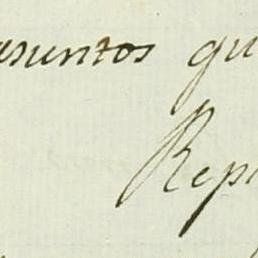 asuntos qu
Rep